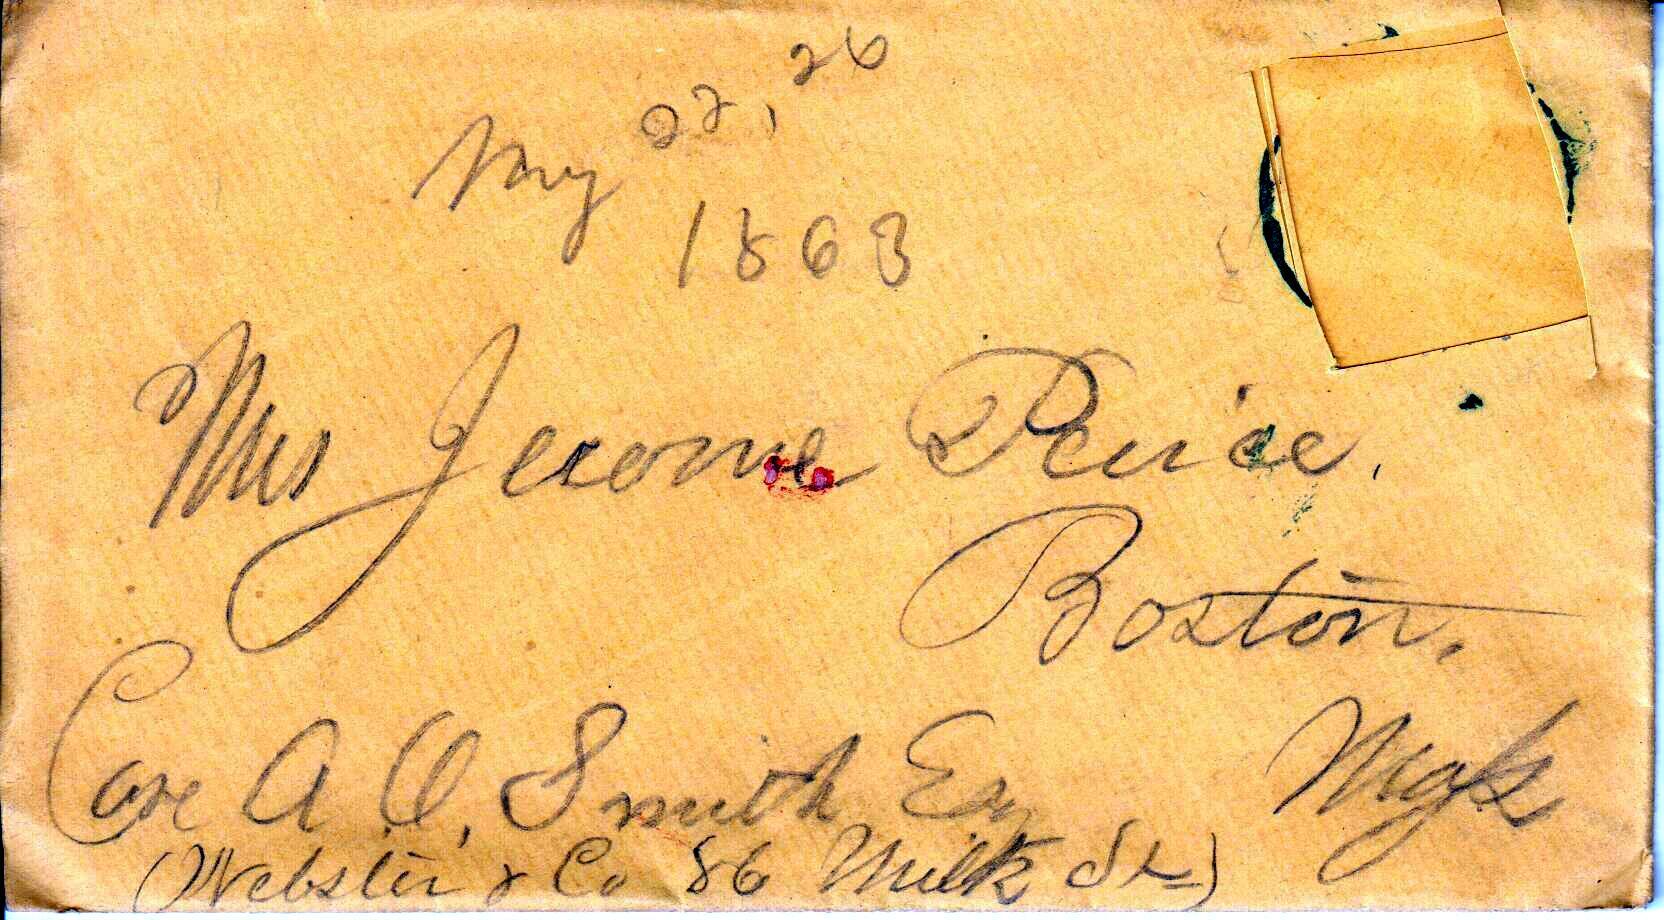 My 22, 26
1863
Mrs Jerome Peirce,
Boston,
Care A. O. Smith Esq Mass
(Webster & Co 86 Milk St)